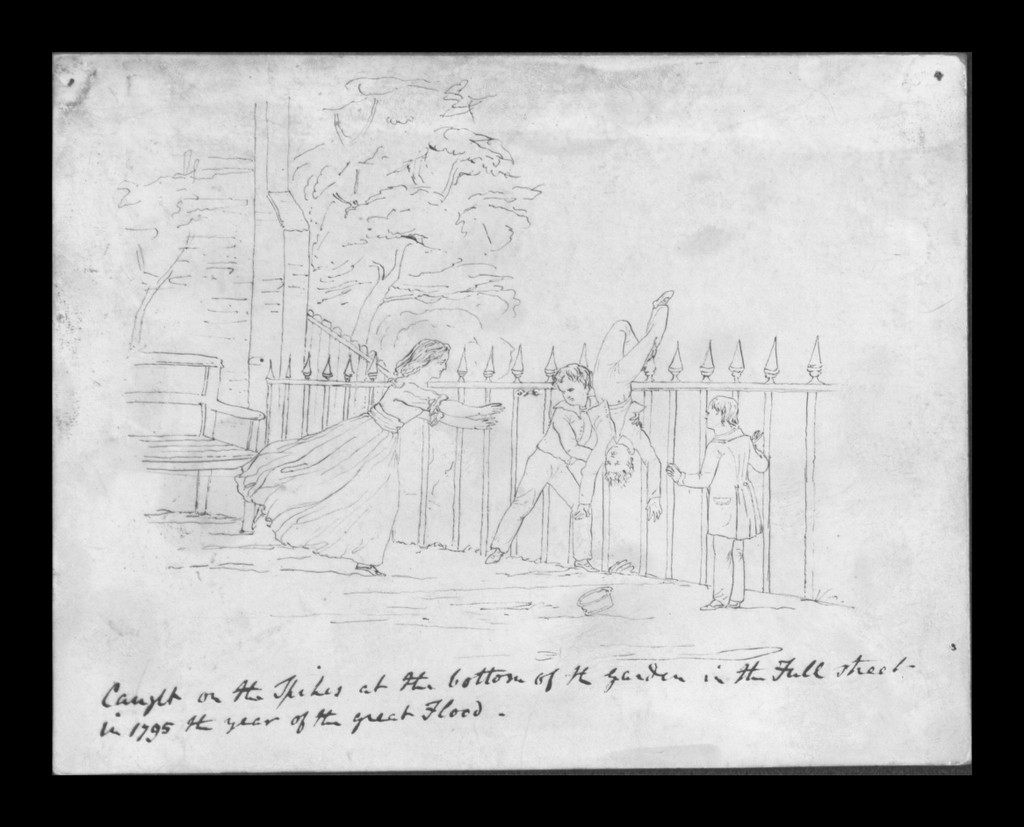 Caught on the Spikes at the bottom of the garden in the Full street.
in 1795 the year of the great Flood.